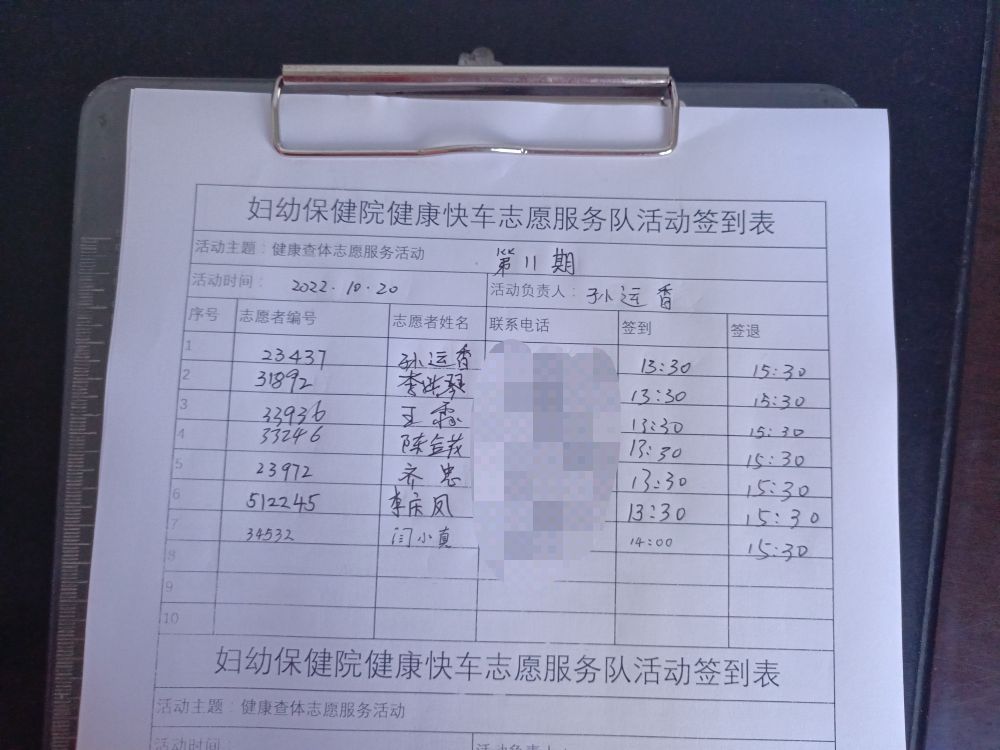 妇幼保健院健康快车志愿服务队活动签到表
活动主题：健康查体志愿服务活动 第11期
活动时间： 2022.10.20 活动负责人： 孙运香
序号 志愿者编号 志愿者姓名 联系电话 签到 签退
1 23437 孙运香 13:30 15:30
2 31892 李洪琴 13:30 15:30
3 33936 王霖 13:30 15:30
4 33246 陈金茂 13:30 15:30
5 23972 齐忠 13:30 15:30
6 512245 李庆凤 13:30 15:30
7 34532 闫小真 14:00 15:30
8
9
10
妇幼保健院健康快车志愿服务队活动签到表
活动主题：健康查体志愿服务活动
活动时间： 活动负责人：